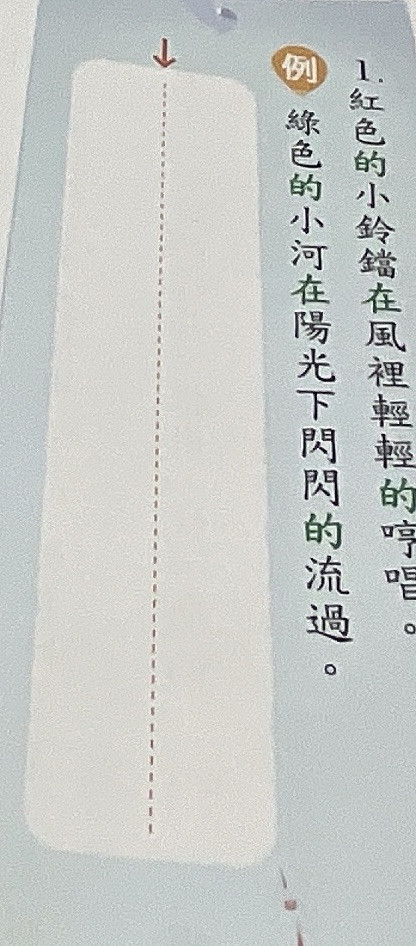 1.紅色的小鈴鐺在風裡輕輕的哼唱。
例 綠色的小河在陽光下閃閃的流過。